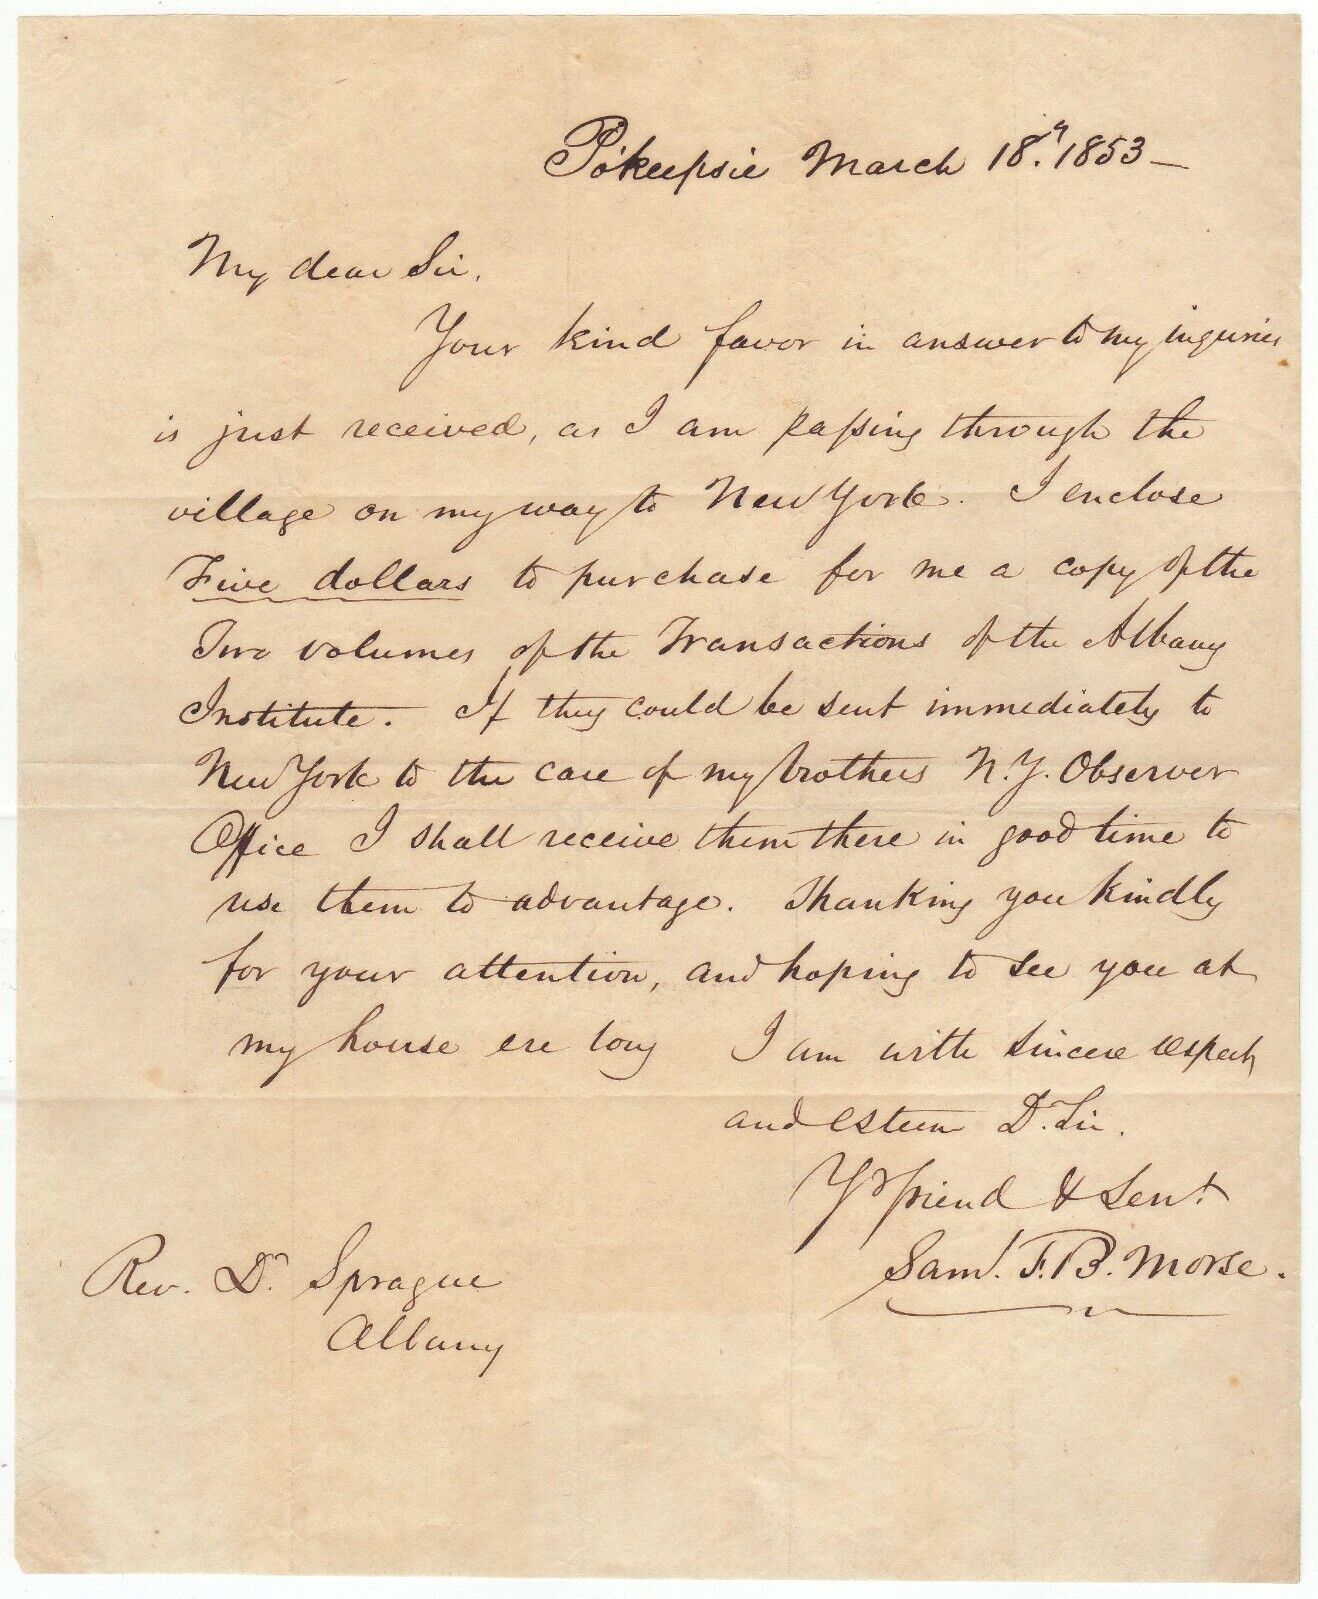 Po'keepsie March 18th. 1853 —
My dear Sir.
Your kind favor in answer to my inquiries
is just received, as I am passing through the
village on my way to New York. I enclose
Five dollars to purchase for me a copy of the
Two volumes of the Transactions of the Albany
Institute. If they could be sent immediately to
New York to the care of my brothers N.Y. Observer
Office I shall receive them there in good time to
use them to advantage. Thanking you kindly
for your attention, and hoping to see you at
my house ere long I am with sincere respect
and esteem D. Sir.
Yr friend & Servt
Saml. F. B. Morse.
Rev. Dr. Sprague
Albany